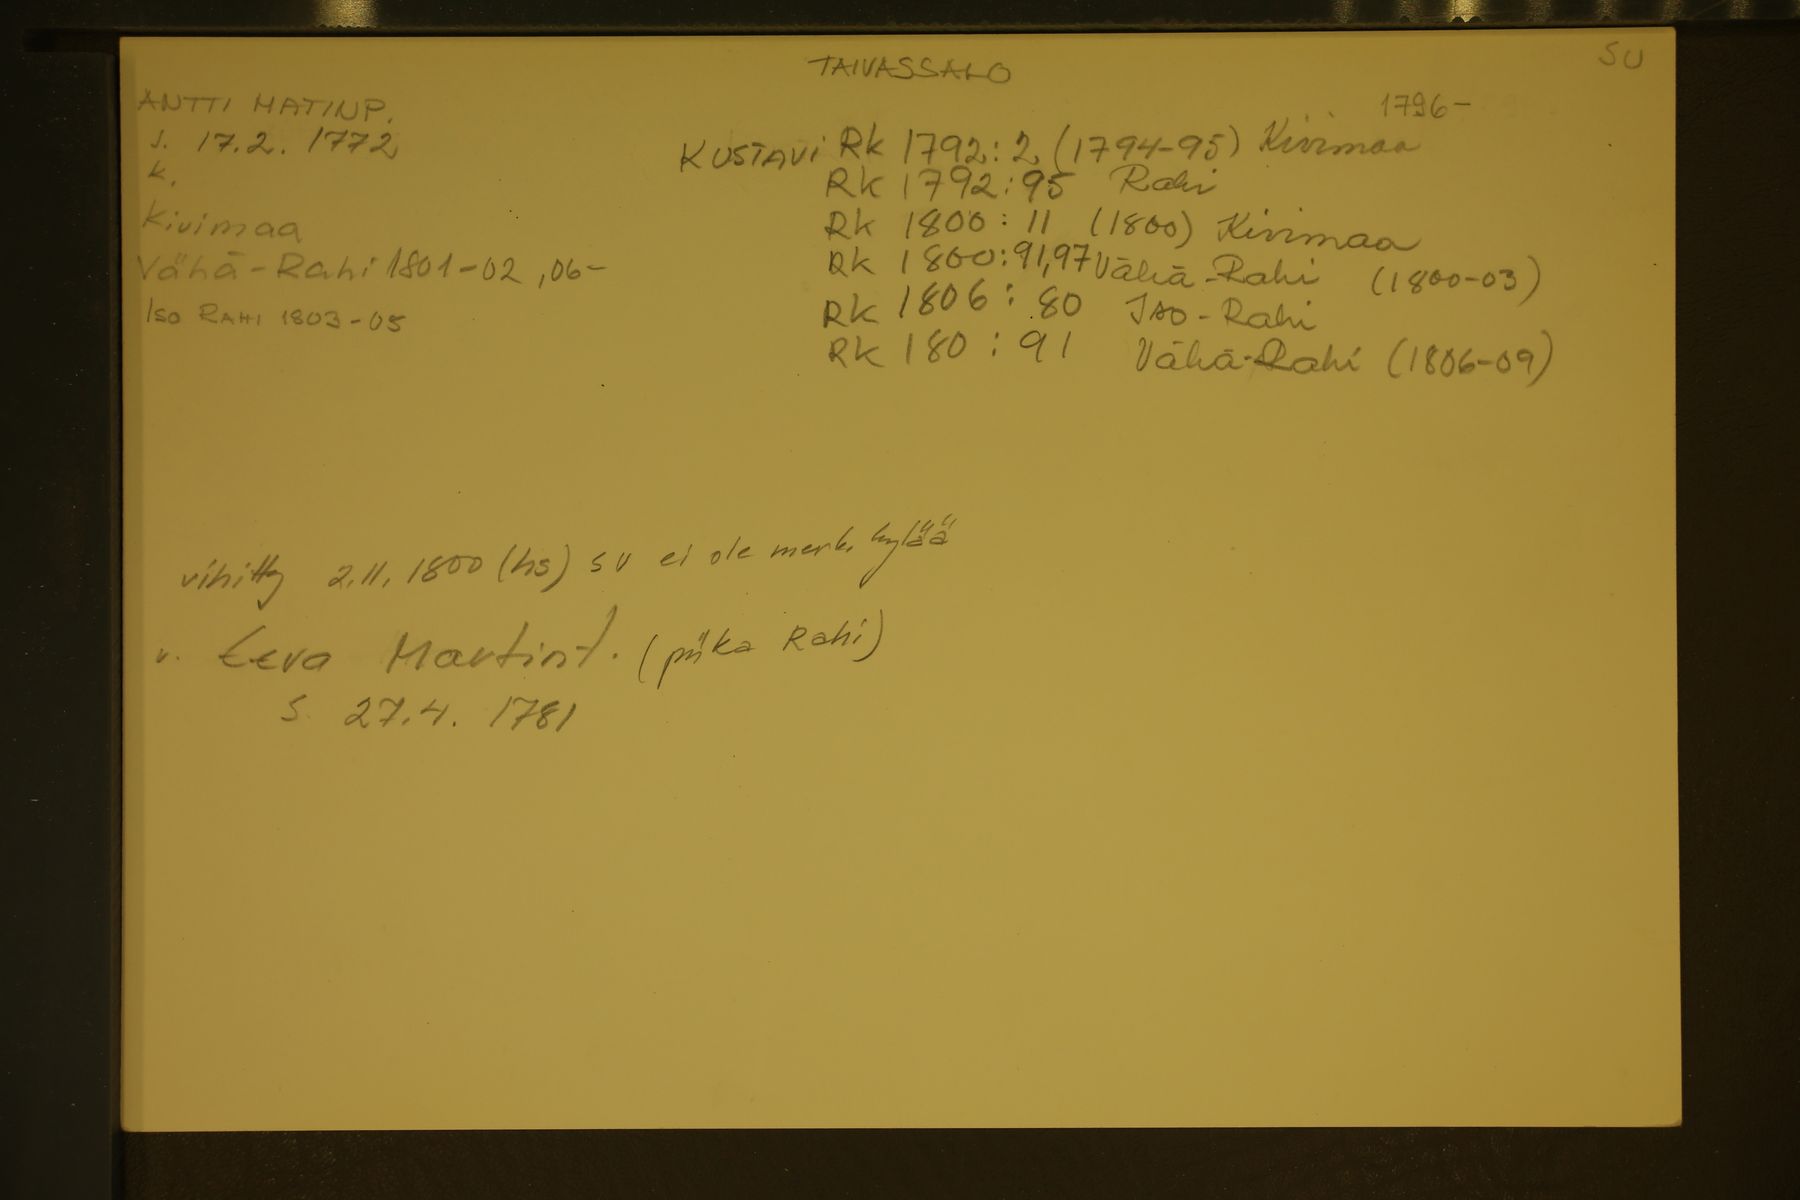 TAIVASSALO
SU
ANTTI MATINP.
s. 17.2. 1772
k.
Kivimaa
Vähä-Rahi 1801-02, 06-
ISO RAHI 1803-05
1796-
KUSTAVI Rk 1792:2 (1794-95) Kivimaa
Rk 1792:95 Rahi
Rk 1800:11 (1800) Kivimaa
Rk 1800:91,97 Vähä-Rahi (1800-03)
Rk 1806:80 Iso-Rahi
Rk 180:91 Vähä-Rahi (1806-09)
vihitty 2.11.1800 (hs) SU ei ole merk. kylää
v. Eeva Martint. (piika Rahi)
s. 27.4. 1781